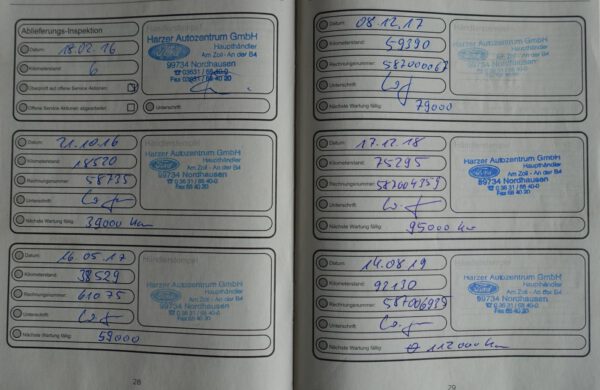 Ablieferungs-Inspektion
Datum: 18.02.16
Kilometerstand: 6
Überprüft auf offene Service Aktionen:
Offene Service-Aktionen abgearbeitet:
Unterschrift
Harzer Autozentrum GmbH
Ford
Haupthändler
Am Zoll - An der B4
99734 Nordhausen
☎ 03631 / 66 40-0
Fax 03631 / 66 40 20
Datum: 21.10.16
Kilometerstand: 18520
Rechnungsnummer: 58735
Unterschrift:
Nächste Wartung fällig: 39000 km
Händlerstempel
Harzer Autozentrum GmbH
Ford
Haupthändler
Am Zoll - An der B4
99734 Nordhausen
☎ 0 36 31 / 66 40-0
Fax 66 40 20
Datum: 16.05.17
Kilometerstand: 38529
Rechnungsnummer: 61075
Unterschrift:
Nächste Wartung fällig: 59000
Händlerstempel
Harzer Autozentrum GmbH
Ford
Haupthändler
Am Zoll - An der B4
99734 Nordhausen
☎ 0 36 31 / 66 40-0
Fax 66 40 20
28
Datum: 08.12.17
Kilometerstand: 59390
Rechnungsnummer:
Unterschrift:
Nächste Wartung fällig: 79000
Händlerstempel
Harzer Autozentrum GmbH
Ford
Haupthändler
Am Zoll - An der B4
99734 Nordhausen
Datum: 17.12.18
Kilometerstand: 75295
Rechnungsnummer: 587004359
Unterschrift:
Nächste Wartung fällig: 95000 km
Harzer Autozentrum GmbH
Ford
Haupthändler
Am Zoll - An der B4
99734 Nordhausen
☎ 0 36 31 / 66 40-0
Fax 66 40 20
Datum: 14.08.19
Kilometerstand: 92130
Rechnungsnummer: 587006935
Unterschrift:
Nächste Wartung fällig: 112000 km
Harzer Autozentrum GmbH
Ford
Haupthändler
Am Zoll - An der B4
99734 Nordhausen
☎ 0 36 31 / 66 40-0
Fax 66 40 20
29